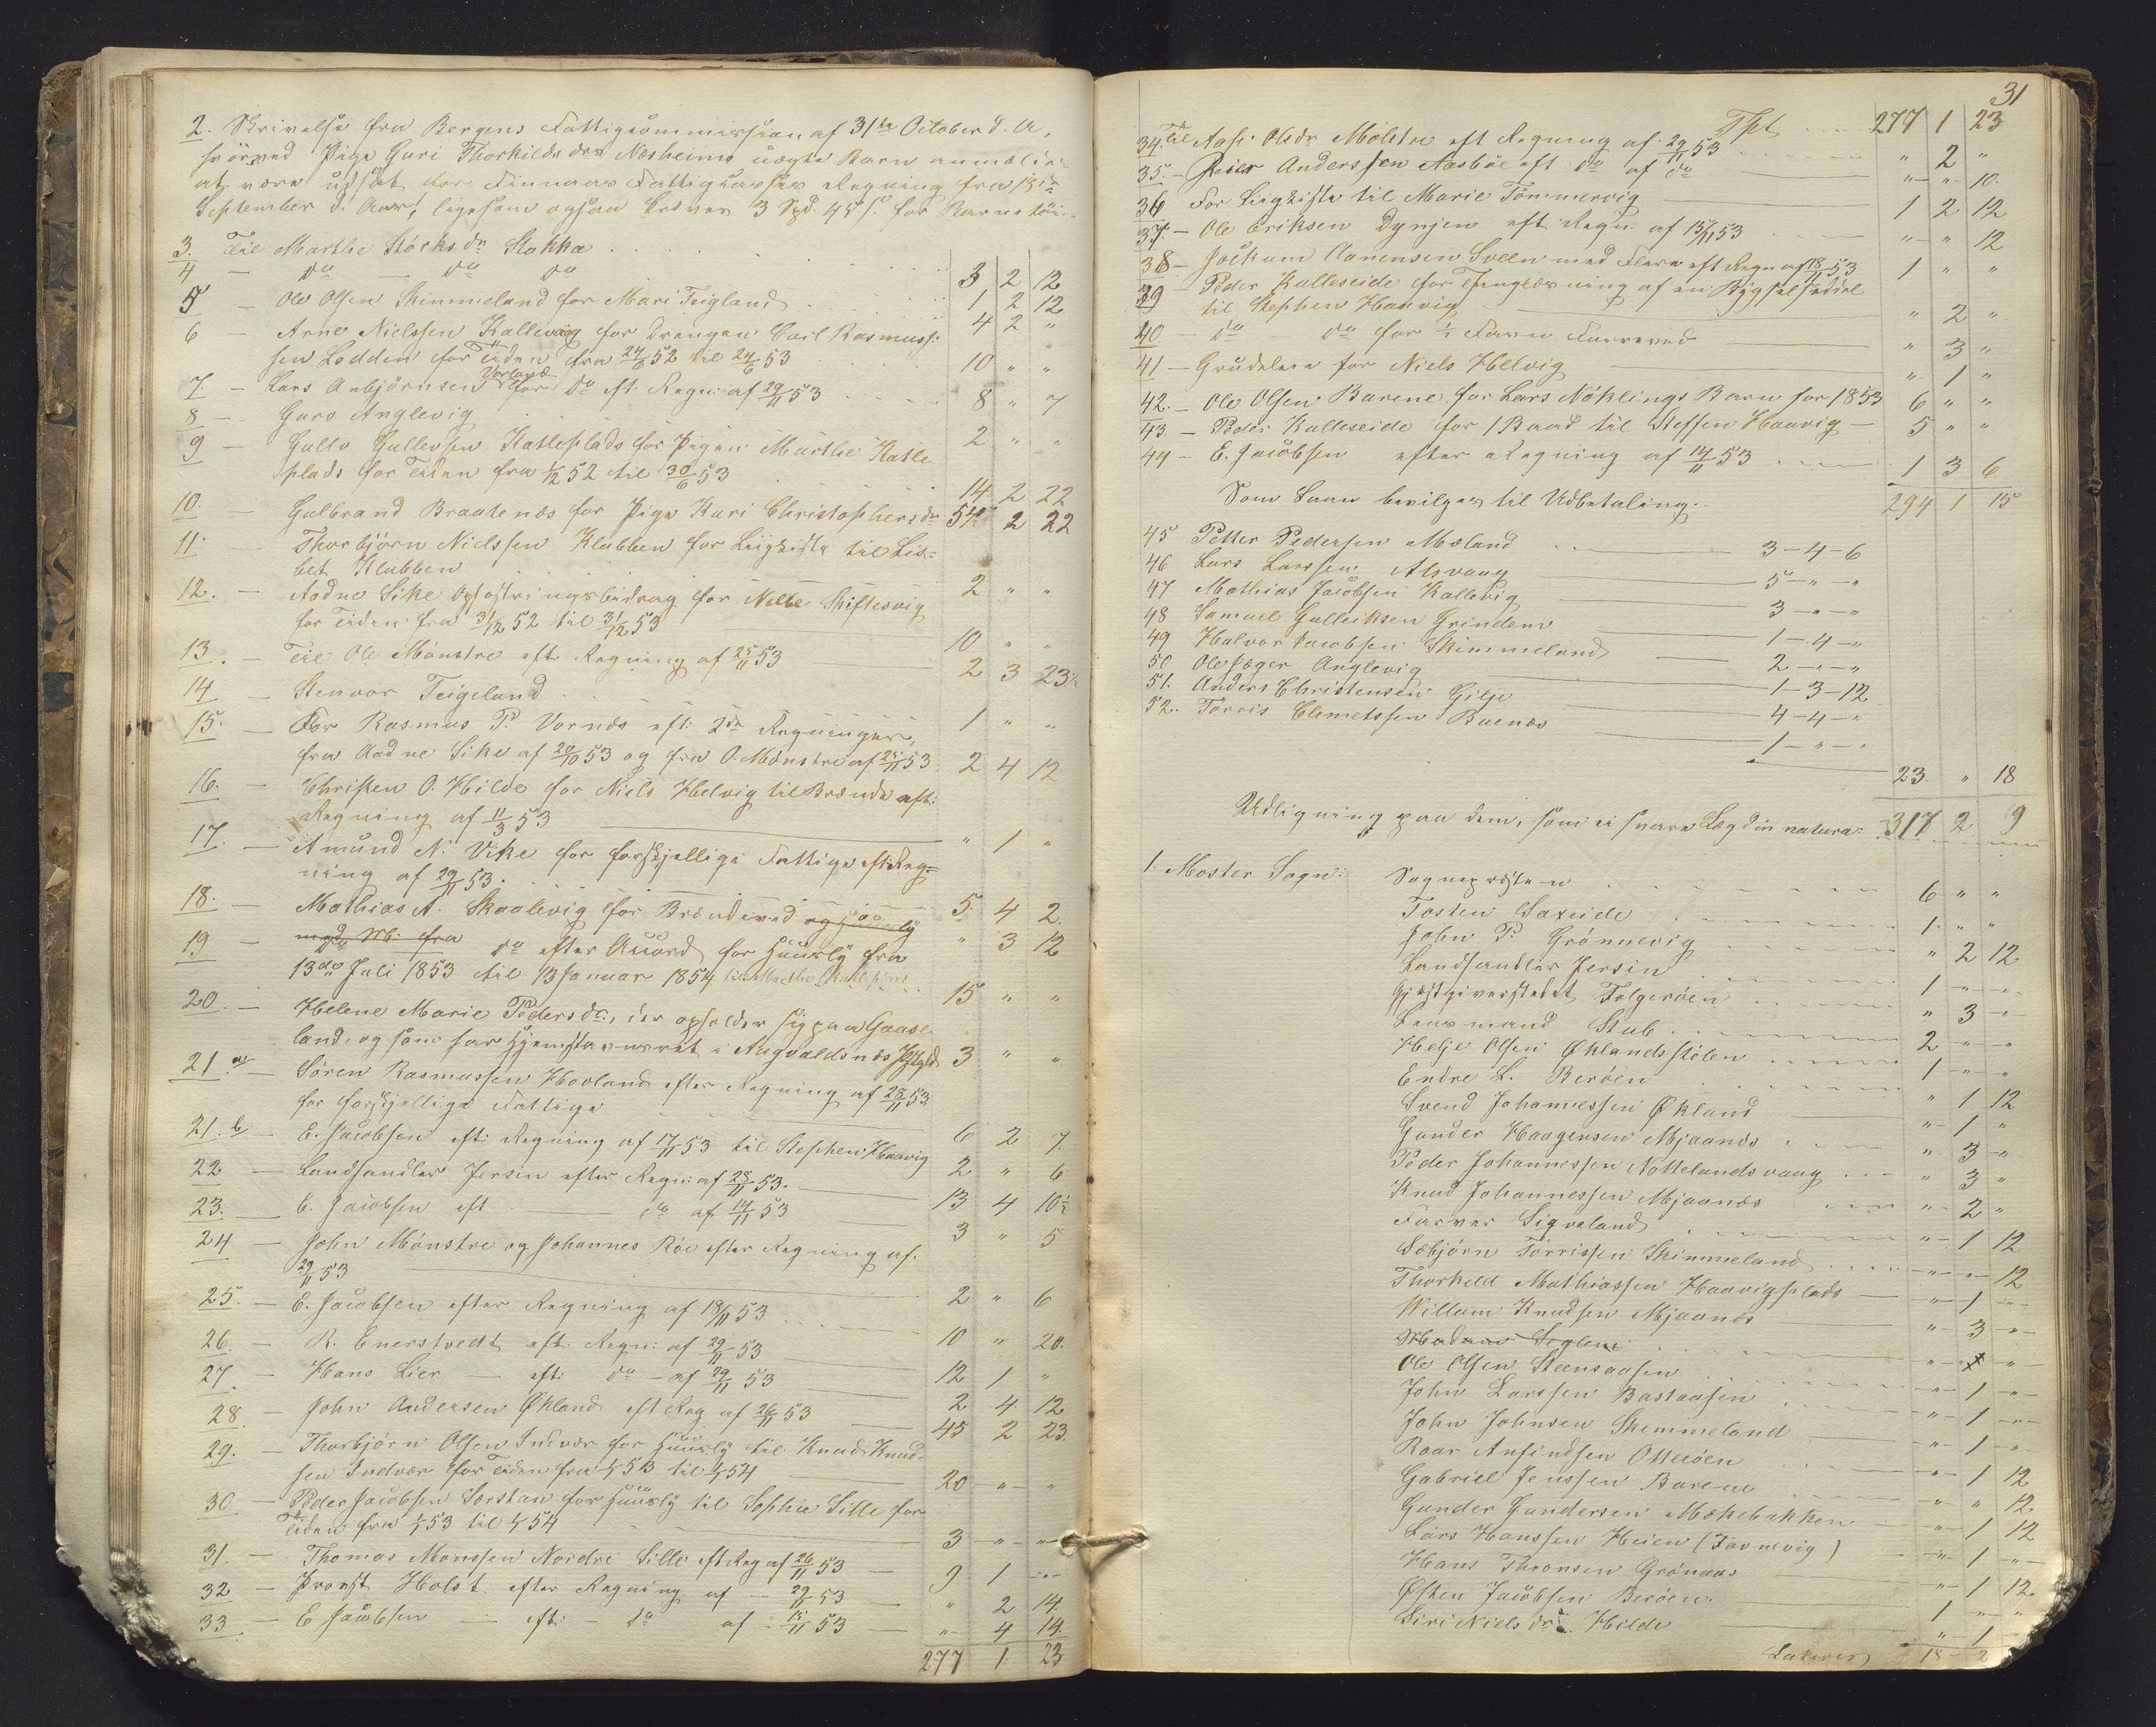 2. Skrivelse fra Bergens Fattigcommission af 31te October d. A,
hvorved Pige Guri Thorkildsdrs Næsheims uægte Barn anmeldes
at være udsat for Finnaas Fattigcasses Regning fra 13de
September d. Aar, ligesom ogsaa kræves 3 Spd. 45 s. for Barnetöi.
3. Til Marthe Störksdr Stokka 3 2 12
4 — do — do do 1 2 12
5 — Ole Olsen Skimmeland for Mari Teigland 4 2 "
6 — Arne Nielssen Kallevaag for Drengen Carl Rasmus-
sen Ledden for Tiden fra 24/6 52 til 24/6 53 10 " "
7. — Lars Anbjörnsen Vorland for do eft. Regn: af 29/11 53 8 " 7
8 — Guro Anglevig 2 " "
9 — Gullo Gullevsen Hatleplads for Pigen Marthe Hatle-
plads for Tiden fra 1/12 52 til 30/6 53 14 2 22
10. — Gulbrand Braatenæs for Pige Kari Christophersdr 54 2 22
11. — Thorbjörn Nielssen Klubben for Liigkiste til Lis-
bet Klubben 2 " "
12. — Aadne Sike Opfostringsbidrag for Nelle Skiftesvig
for Tiden fra 31/12 52 til 31/12 53 10 " "
13. — Til Ole Mönstre eft Regning af 25/11 53 2 3 23½
14 — Stenvor Teigeland 1 " "
15. — For Rasmus P. Vornæs eft: 2de Regninger,
fra Aadne Sike af 20/10 53 og fra O. Mönstre af 25/11 53 2 4 12
16. — Christen O. Hilde for Niels Helvig til Brænde eft:
Regning af 11/3 53 " 1 "
17. — Amund N. Vike for forskjellige Fattige eft: Reg-
ning af 29/11 53. 5 4 2
18. — Mathias A. Skaalevig for Brændeved og Huusly " 3 12
med M: fra
19 — do do efter Accord for Huusly fra
13de Juli 1853 til 13 Januar 1854 til Marthe Hatleplads 15 " "
20. — Helene Marie Pedersdr, der opholder sig paa Gaase-
land, og som har Hjemstavnsret i Augvaldsnæs Pgjæld 3 " "
21.a — Sören Rasmussen Hovland efter Regning af 28/11 53
for forskjellige Fattige 6 2 7.
21.b — E. Jacobsen eft: Regning af 17/11 53 til Stephen Haavig 2 " 6
22 — Landhandler Jersin efter Regn: af 28/11 53. 13 4 10½
23. — E. Jacobsen eft do af 14/11 53 3 " 5
24 — John Mönstre og Johannes Röe efter Regning af.
29/11 53 2 " 6
25. — E. Jacobsen efter Regning af 18/11 53 10 " 20.
26. — R. Enerstvedt eft. Regn: af 29/11 53 12 1 "
27 — Hans Lier — eft: do — af 29/11 53 2 4 12
28. — John Andersen Økland eft Reg af 26/11 53 45 2 23
29. — Thorbjörn Olsen Indvær for Huusly til Knud Knud-
sen Indvær for Tiden fra 1/1 53 til 1/1 54 20 " "
30 — Peder Jacobsen Sorstan for Huusly til Sophie Lille for
Tiden fra 1/1 53 til 1/1 54 3 " "
31. — Thomas Monssen Nordre Lille eft Reg af 26/11 53 9 1 "
32 — Provst Holst efter Regning af — 29/11 53 " 2 14.
33. — E Jacobsen — eft: — do af — 15/11 53 " 4 14.
277 1 23
31
Tspt 277 1 23
34. Til Aase Olsdr Mölstre eft Regning af 29/11 53 " 2 "
35. — Peier Anderssen Aasböe eft do af do " " 10.
36 — For Liigkiste til Marie Tömmervig 1 2 12
37 — Ole Eriksen Dynjen eft Regn: af 15/11 53 " " 12
38 — Jockum Aanensen Sveen med Flere eft Regn af 18/11 53 1 " "
39 — Peder Kalleseide for Thinglæsning af en Bygselseddel
til Stephen Haavig " 2 "
40. — do do for ½ Favn Furreved " 3 "
41 — Grudeleie for Niels Helvig " 1 "
42. — Ole Olsen Barene for Lars Nöklings Barn for 1853 6 " "
43. — Peder Kalleseide for 1 Baad til Steffen Haavig — 5 " "
44 — E. Jacobsen efter Regning af 14/11 53 1 3 6
Som Laan bevilges til Udbetaling. 294 1 15
45 Petter Pedersen Meland 3 — 4 — 6
46 Lars Larssen Alsvaag 5 — " — "
47 Mathias Jacobsen Kallevig 3 — " — "
48 Samuel Gulleiksen Grindem 1 — 4 — "
49 Halvor Jacobsen Skimmeland 2 — " — "
50 Ole Jæger Anglevig 1 — 3 — 12
51. Anders Christensen Gilje 4 — 4 — "
52. Torris Clemetssen Buenæs 1 — " — "
23. " 18
Udligning paa dem, som ei svare Lægd in natura: 317 2 9
1. Moster Sogn: Sognepræsten 6 " "
Tosten Saxeide 1. " "
John P. Grönnevig " 2 12
Landhandler Jersin 1 " "
Gjæstgiverstedet Folgeröen " 3 "
Lensmand Stub 2 " "
Helje Olsen Øklandsstölen 1 " "
Endre L. Beröen " 1 12
Svend Johannessen Økland " 1 "
Gunder Haagensen Mjaanæs " 3 "
Peder Johannessen Nottelandsvaag " 3 "
Knud Johannessen Mjaanæs " 2 "
Farver Sigveland " 1 12
Sæbjörn Torrissen Skimmeland " " 12
Thorkeld Mathiassen Haavigplads " 1 "
Willum Knudsen Mjaanæs " 3 "
Seglem
Ole Olsen Steensaasen " 1 "
John Larssen Bastaasen " 1 "
John Johnsen Skimmeland " 1 "
Roar Anfindsen Otteröen " 1 12
Gabriel Jenssen Barene " " 12.
Gunder Gundersen Mækebakken " 1 12
Lars Hanssen Heien (Favnevig) " 1 "
Hans Thronsen Grönaas " 1 12.
Østen Jacobsen Beröen. 1 " "
Siri Nielsdr Hilde " 1 "
Lateris 18 2